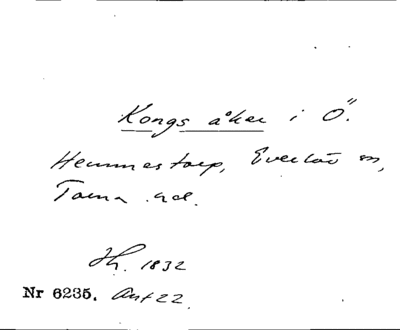 Kongs åker i Ö.
Hemmestorp, Everlöv sn,
Torna hd.
Th. 1832
Nr 6235. Ant 22.